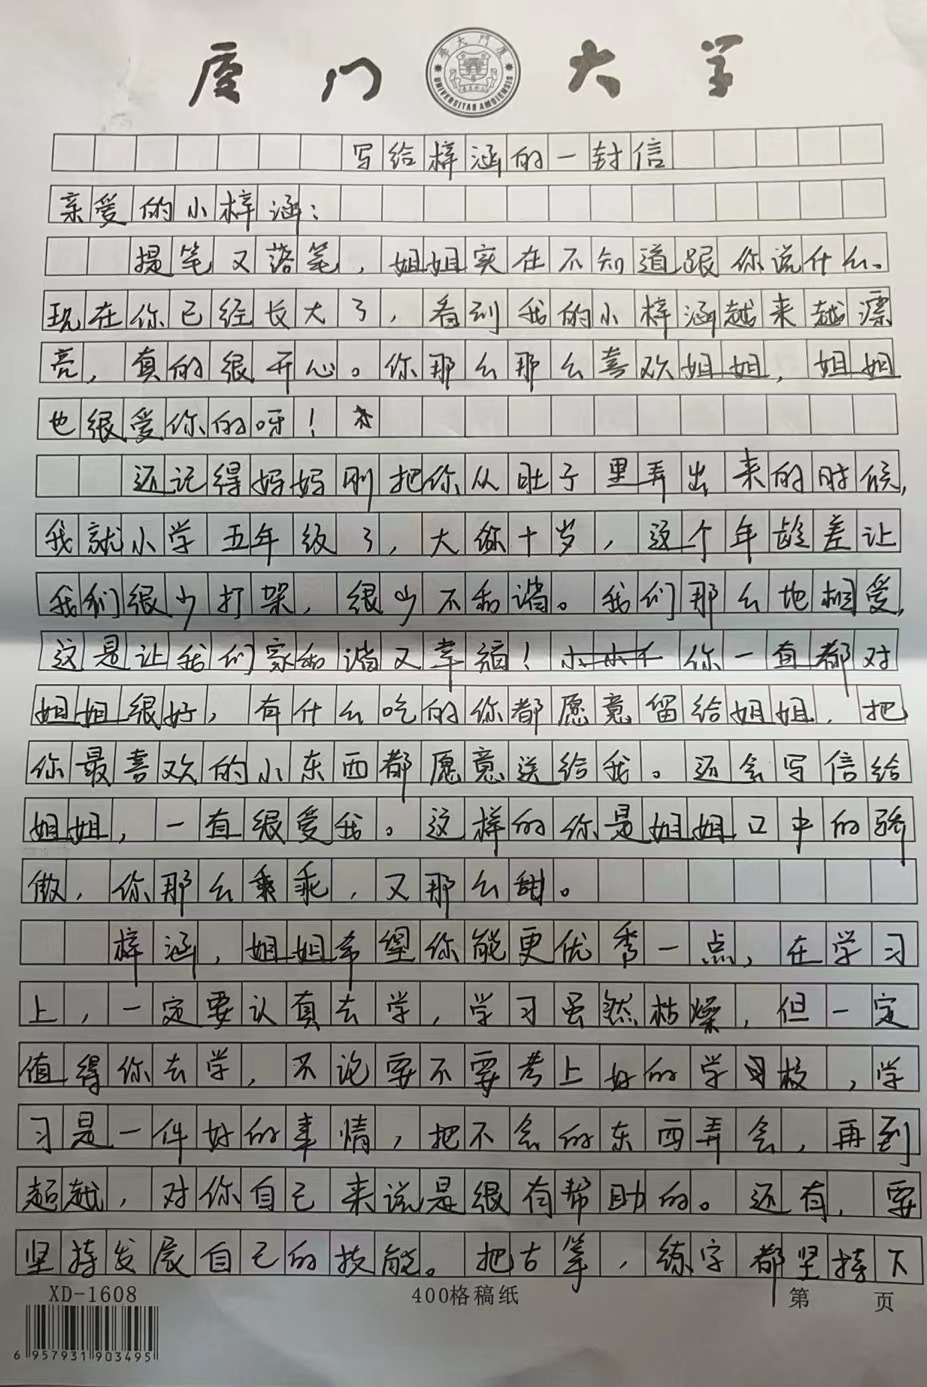 厦门大学
写给梓涵的一封信
亲爱的小梓涵：
提笔又落笔，姐姐实在不知道跟你说什么。
现在你已经长大了，看到我的小梓涵越来越漂
亮，真的很开心。你那么那么喜欢姐姐，姐姐
也很爱你的呀！
还记得妈妈刚把你从肚子里弄出来的时候，
我就小学五年级了，大你十岁，这个年龄差让
我们很少打架，很少不和谐。我们那么地相爱，
这是让我们家和谐又幸福！你一直都对
姐姐很好，有什么吃的你都愿意留给姐姐，把
你最喜欢的小东西都愿意送给我。还会写信给
姐姐，一直很爱我。这样的你是姐姐口中的骄
傲，你那么乖乖，又那么甜。
梓涵，姐姐希望你能更优秀一点，在学习
上，一定要认真去学，学习虽然枯燥，但一定
值得你去学，不说要不要考上好的学校，学
习是一件好的事情，把不会的东西弄会，再到
超越，对你自己来说是很有帮助的。还有，要
坚持发展自己的技能。把古筝，练字都坚持下
XD-1608
400格稿纸
第 页
6 957931 903495